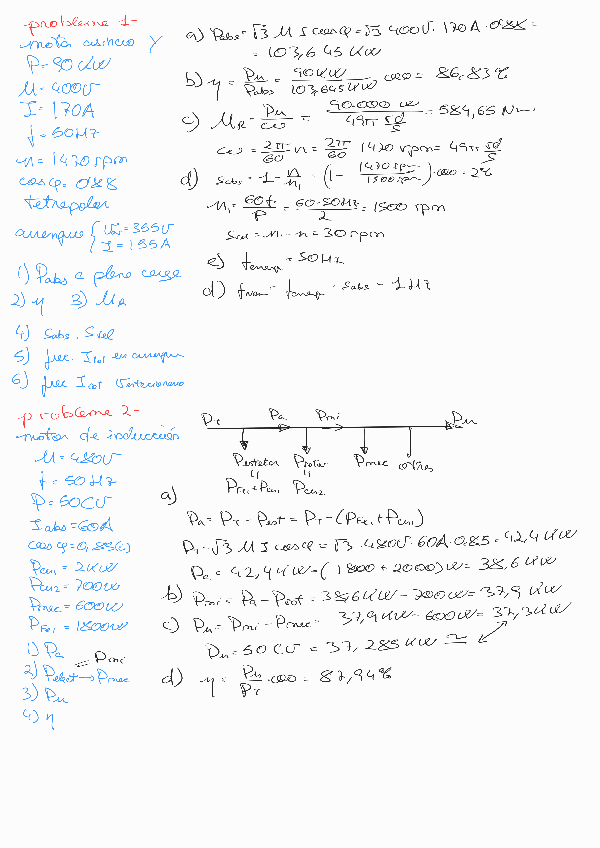 probleme 1-
motor asíncro Y
P= 90 KW
U= 400V
I= 170A
f= 50Hz
n= 1470 rpm
cos φ= 0'88
tetrapolar
arranque { = 355V
I= 155A
1) Pabs a plena carga
2) η 3) MR
4) Sabs, Srel
5) frec. Irot en arranque
6) frec Irot
a) Pabs= √3 U I cosφ = √3 · 400V · 170A · 0'88 =
= 103,645 KW
b) η = Pu/Pabs = 90KW/103,645KW · 100 = 86,83%
c) MR = Pu/ω = 90.000 W / 49π rd/s = 584,65 N·m
ω = 2π/60 n = 2π/60 · 1470 rpm = 49π rd/s
d) Sabs = 1 - n/n1 = (1 - 1470 rpm/1500 rpm) · 100 = 2%
n1 = 60f/P = 60·50Hz/2 = 1500 rpm
Srel = n1 - n = 30 rpm
e) = 50Hz
d) · Sabs = 1Hz
probleme 2-
motor de inducción
U= 480V
f= 50Hz
P= 50CV
Iabs= 60A
cosφ= 0,85(i)
Pcu1 = 2KW
Pcu2 = 700W
Pmec = 600W
PFe1 = 1800W
1) Pa
2) Pelect → Pmec = Pmi
3) Pu
4) η
PT Pa Pmi Pu
Pestator Protor Pmec otras
PFe1 + Pcu1 Pcu2
a)
Pa = PT - Pest = PT - (PFe1 + Pcu1)
PT = √3 U I cosφ = √3 · 480V · 60A · 0.85 = 42,4 KW
Pa = 42,4 KW - (1800 + 2000)W = 38,6 KW
b) Pmi = Pa - Prot = 38,6 KW - 700W = 37,9 KW
c) Pu = Pmi - Pmec = 37,9 KW - 600W = 37,3 KW
Pu = 50 CV = 37,285 KW ≅
d) η = Pu/PT · 100 = 87,94%